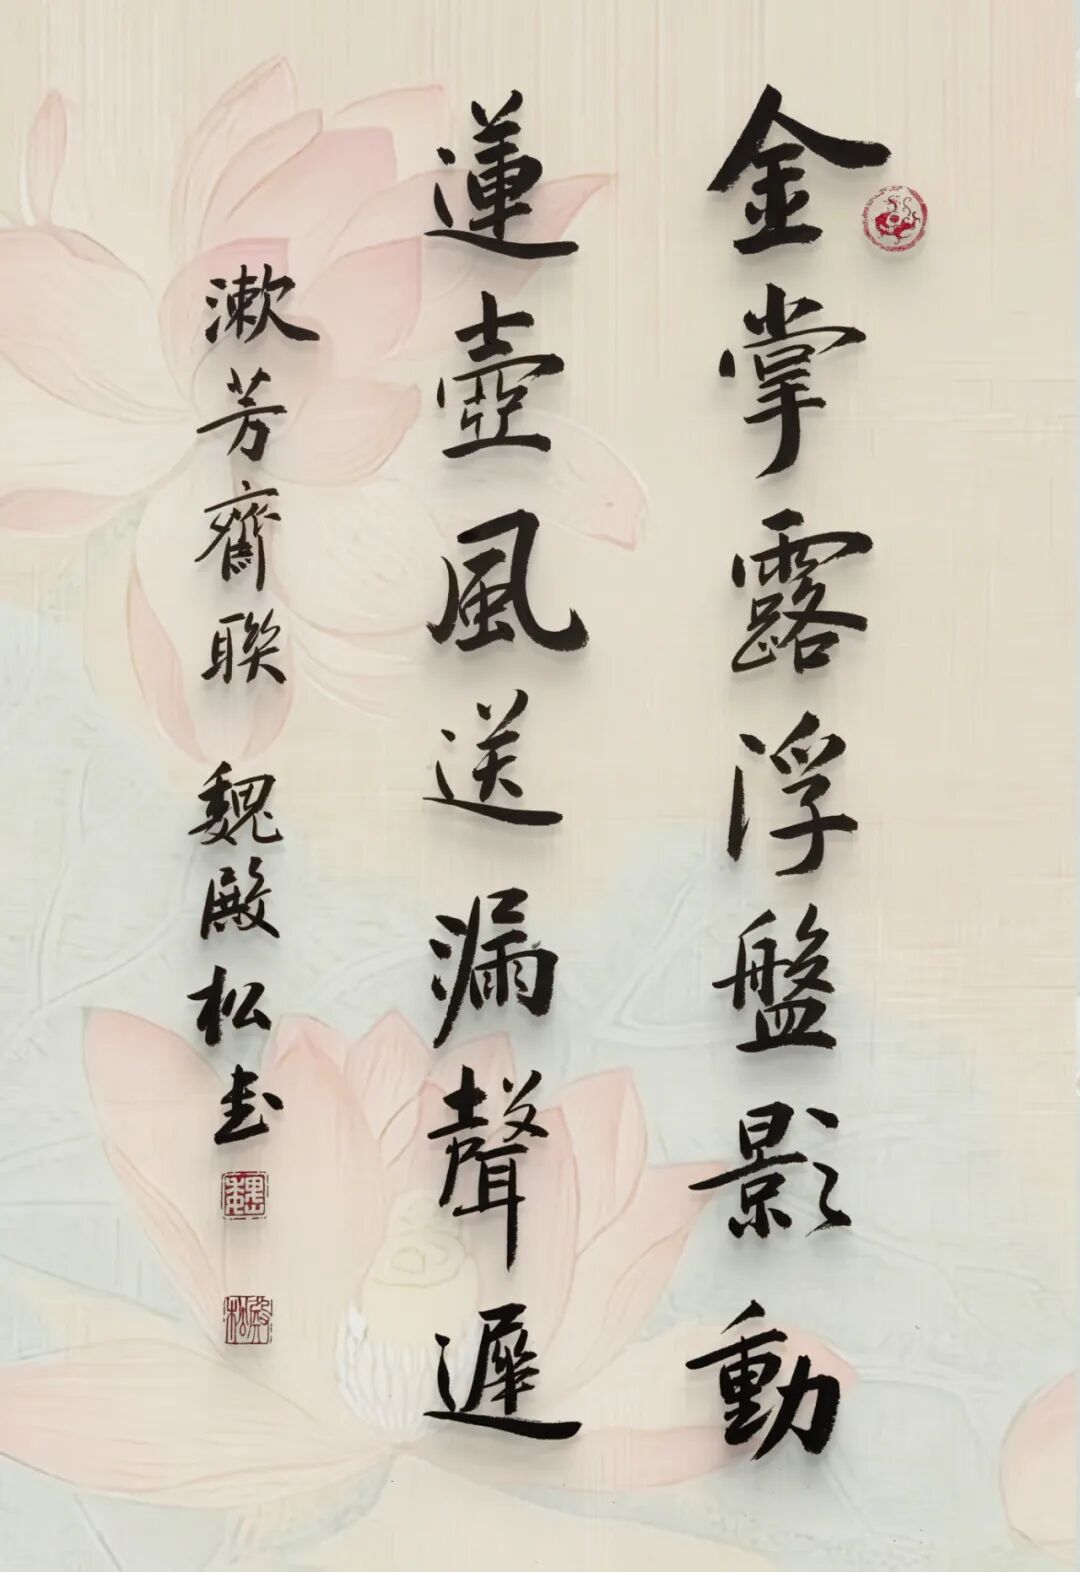 金掌露浮盤影動
蓮壺風送漏聲遲
漱芳齋聯 魏殿松书
魏
殿松